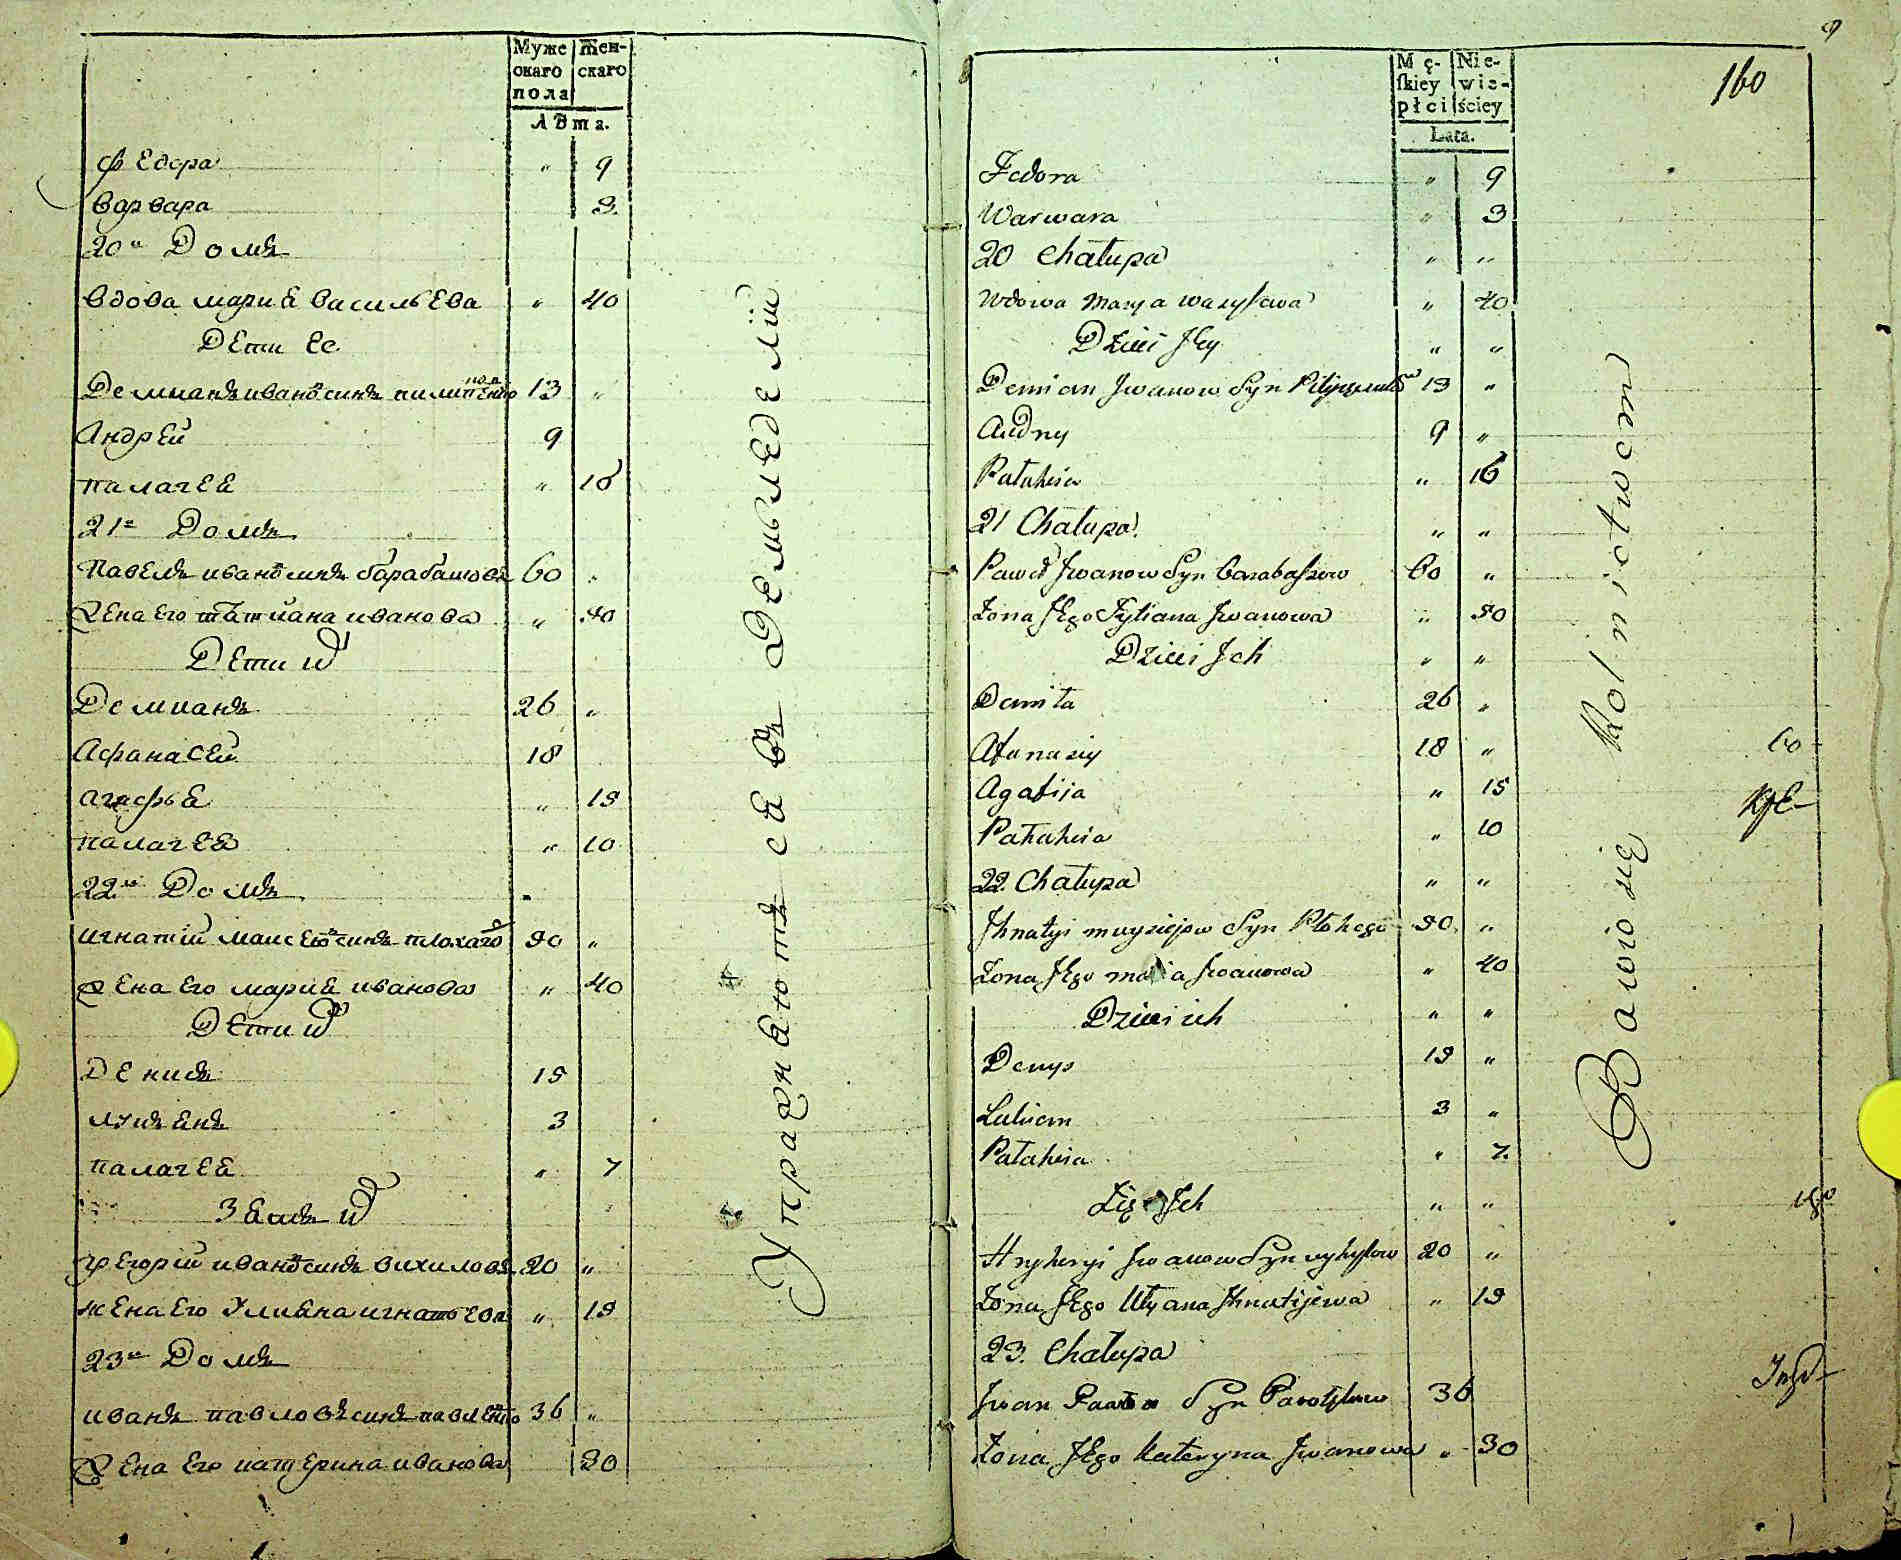 Муже Жен-
скаго скаго
пола
Лѣта.
Федора " 9
Варвара 3
20й Домъ
Вдова Мария Васильева " 40
Дети Ее
Демианъ Ивановъ синъ 13 "
Андрей 9
Палагея " 16
21й Домъ
Павелъ Ивановъ синъ Барабашовъ 60 "
Жена Его Татиана Иванова "
Дети их
Демианъ 26 "
Афанасей 18
Агафья " 15
Палагея " 10
22й Домъ
Игнатий синъ Плохаго "
Жена Его Мария Иванова " 40
Дети их
Денисъ 15
Лукъянъ 3
Палагея " 7
Зять их
Григорий Ивановъ синъ Вихиловъ 20 "
Жена Его Улияна Игнатьева "
23й Домъ
Иванъ Павловъ синъ 36 "
Жена Его Катерина Иванова 30
Упражняются въ Земледелии
9
160
Mę- Nie-
ſkiey wie-
płci ściey
Lata.
Fedora " 9
Warwara " 3
20 Chałupa " "
Wdowa Marya Wasylowa " 40
Dzieci Jey " "
Demian Jwanow Syn 13 "
Andry 9 "
Pałahia " 16
21 Chałupa " "
Paweł Jwanow Syn Barabaszow 60 "
Żona Jego Tytiana Jwanowa "
Dzieci Jch " "
26 "
Afanasiy 18 "
Agafija " 15
Pałahia " 10
22. Chałupa " "
Jhnatyi Syn Płohego "
Żona Jego Maria Jwanowa " 40
Dzieci ich " "
Denys "
3 "
Pałahia " 7.
Zięć Jch " "
Hryhoryi Jwanow Syn Wyhyłow 20 "
Żona Jego Ulyana Jhnatijewa "
23. Chałupa
Jwan Syn 36
Żona Jego Kateryna Jwanowa " 30
Bawio się Rolnictwem